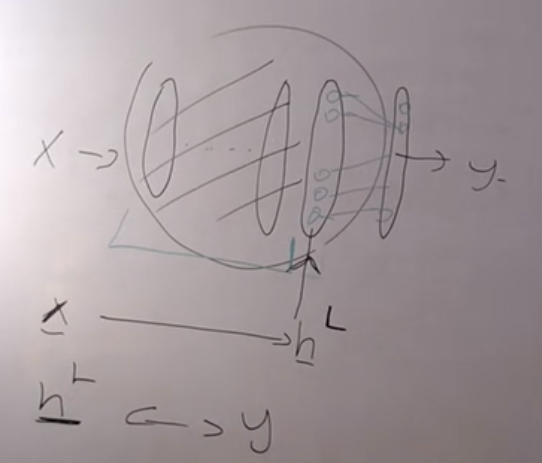 X → → y
x → h^L
h^L ↔ y